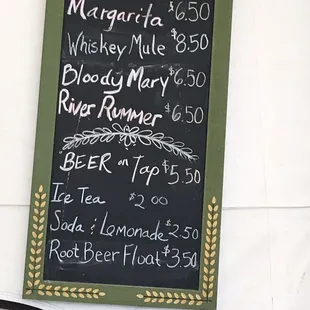 Margarita $6.50
Whiskey Mule $8.50
Bloody Mary $6.50
River Rummer $6.50
"BEER on Tap $5.50
Ice Tea $2.00
Soda & Lemonade $2.50
Root Beer Float $3.50